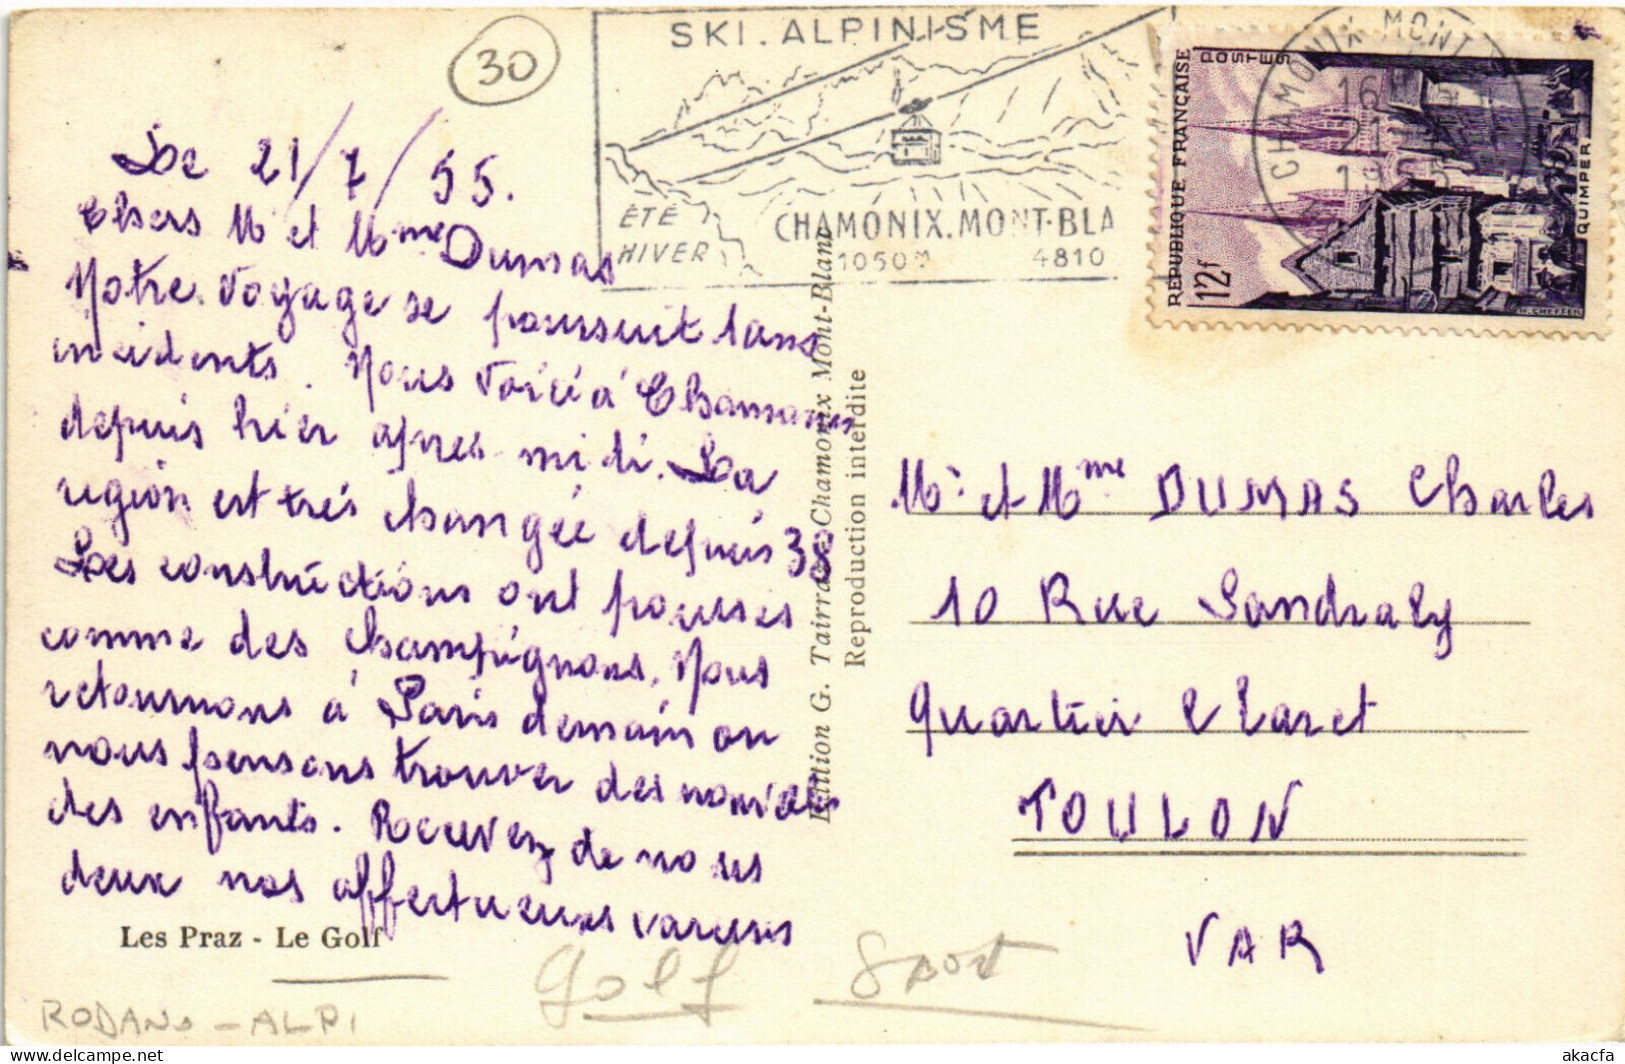 30
SKI.ALPINISME
ÉTÉ
HIVER
CHAMONIX.MONT-BLA
1050m 4810
CHAMONIX MONT
16
21
1955
REPUBLIQUE FRANÇAISE
POSTES
12f
QUIMPER
H. CHEFFER
Le 21/7/55.
Chers M et Mme Dumas
Notre voyage se poursuit sans
incidents. Nous voici à Chamonix
depuis hier apres midi. La
région est très changée depuis 38
Les constructions ont poussés
comme des champignons. Nous
retournons à Paris demain ou
nous pensons trouver des nouvelles
des enfants. Recevez de nous
deux nos affectueuses
Les Praz - Le Golf
Edition G. Tairraz Chamonix Mont-Blanc
Reproduction interdite
Mr et Mme DUMAS Charles
10 Rue
Quartier Claret
TOULON
VAR
Golf Sport
RODANO - ALPI
delcampe.net
akacfa